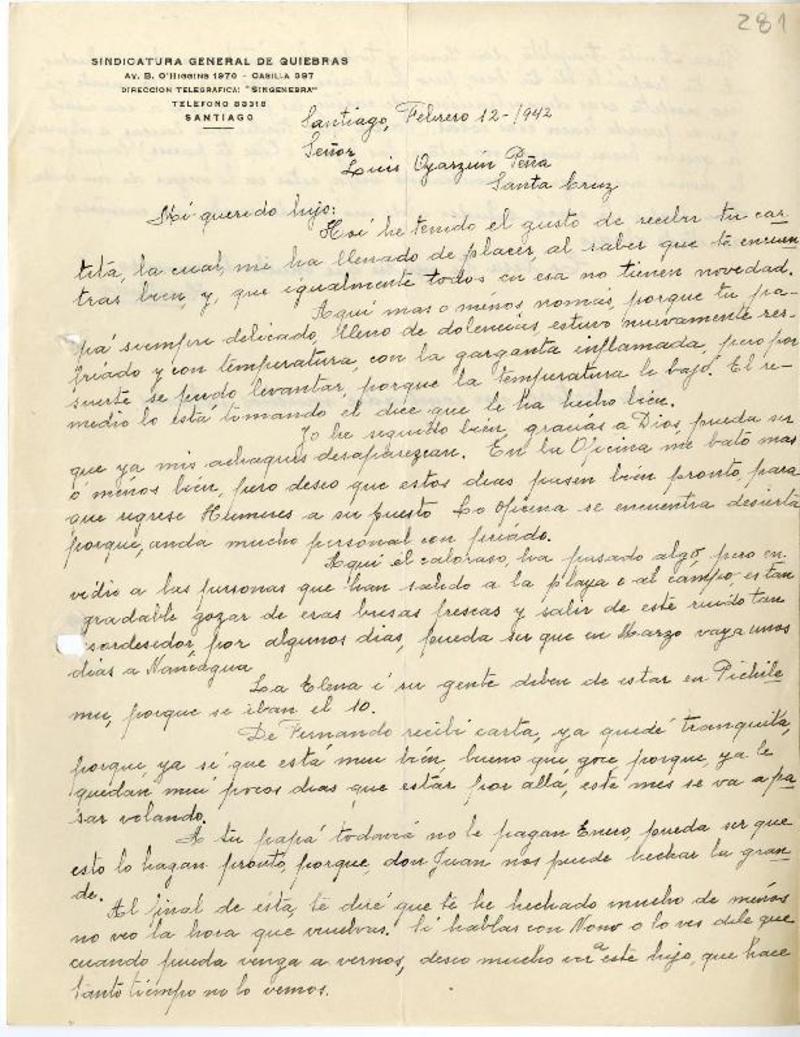 281
SINDICATURA GENERAL DE QUIEBRAS
AV. B. O'HIGGINS 1970 - CASILLA 397
DIRECCION TELEGRAFICA: "SINGENEBRA"
TELEFONO 83318
SANTIAGO
Santiago, Febrero 12-1942
Señor
Luis Oyarzún Peña
Santa Cruz
Mi querido hijo:
Hoi he tenido el gusto de recibir tu car-
tita, la cual, me ha llenado de placer, al saber que te encuen
tras bien, y, que igualmente todos en esa no tienen novedad.
Aquí mas o menos nomás, porque tu pa-
pá siempre delicado, lleno de dolencias, estuvo nuevamente res-
friado y con temperatura, con la garganta inflamada, pero por
suerte se pudo levantar, porque la temperatura le bajó. El re-
medio lo está tomando el dice que le ha hecho bien.
Yo he seguido bien, gracias a Dios, pueda ser
que ya mis achaques desaparezcan. En la Oficina me bato mas
o menos bien, pero deseo que estos dias pasen bien pronto, para
que regrese Humeres a su puesto La oficina se encuentra desierta
porque, anda mucho personal con feriado.
Aqui el caloraso, ha pasado algo, pero en
vidio a las personas que han salido a la playa o al campo, es tan
gradable gozar de esas brisas frescas y salir de este ruido tan
sordesedor, por algunos dias, pueda ser que en Marzo vaya unos
dias a Nancagua
La Elena i su gente deben de estar en Pichile
mu, porque se iban el 10.
De Fernando recibí carta, ya quedé tranquila,
porque, ya sé que está mui bien, bueno que goce, porque, ya le
quedan mui pocos dias que estar por allá, este mes se va a pa
sar volando.
A tu papá todavia no le pagan Enero, pueda ser que
esto lo hagan pronto, porque, don Juan nos puede hechar la gran
de.
Al final de ésta, te diré que te he hechado mucho de menos
no veo la hora que vuelvas. Si hablas con Nono o lo ves dile que
cuando pueda venga a vernos, deseo mucho ver a este hijo, que hace
tanto tiempo no lo vemos.